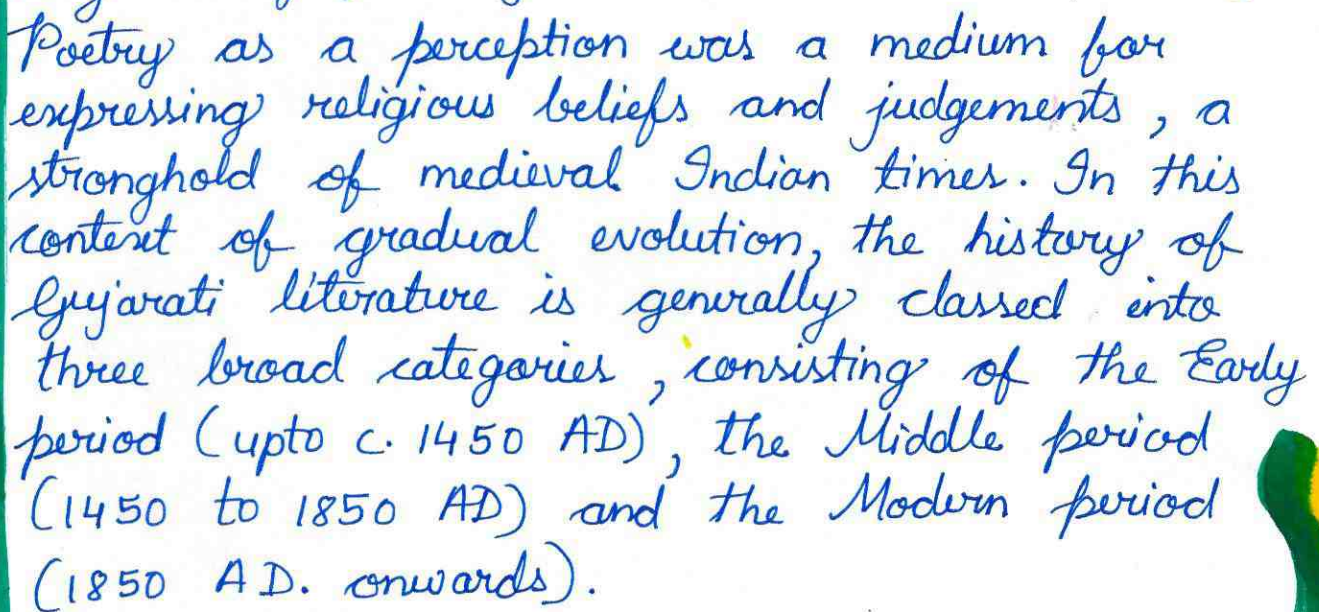 Poetry as a perception was a medium for
expressing religious beliefs and judgements, a
stronghold of medieval Indian times. In this
context of gradual evolution, the history of
Gujarati literature is generally classed into
three broad categories, consisting of the Early
period (upto c. 1450 AD), the Middle period
(1450 to 1850 AD) and the Modern period
(1850 AD. onwards).